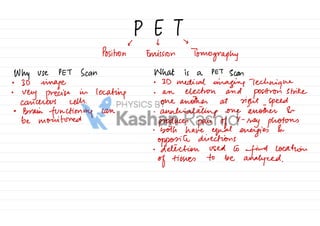 PET
Positron Emission Tomography
Why use PET Scan
• 3D image
• very precise in locating
cancerous cells
• Brain functioning can
be monitored
What is a PET Scan
• 3D medical imaging Technique
• an electron and positron strike
one another at high speed
• annihilating one another &
produces pair of γ-ray photons
• both have equal energies &
opposite directions
• detection used to find location
of tissues to be analyzed.
PHYSICS BY
Kashan Rashid